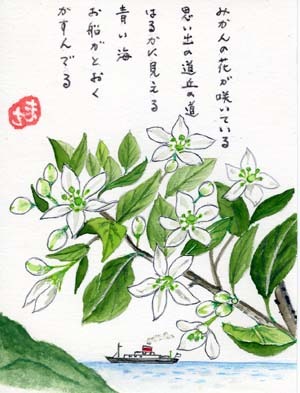 みかんの花が咲いている
思い出の道丘の道
はるかに見える
青い海
お船がとおく
かすんでる
まさ